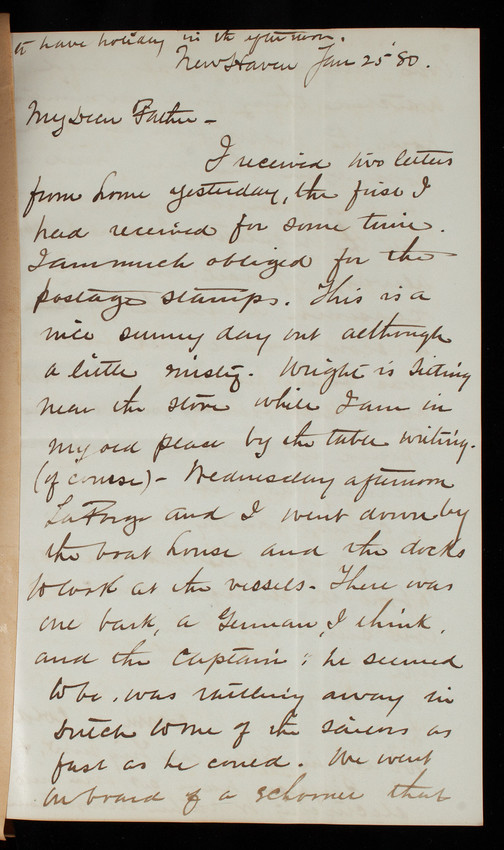 to have holiday in the afternoon.
New Haven Jan 25 '80.
My Dear Father -
I received two letters
from home yesterday, the first I
had received for some time.
I am much obliged for the
postage stamps. This is a
nice sunny day out although
a little misty. Wright is sitting
near the stove while I am in
my old place by the table writing.
(of course) - Wednesday afternoon
LaFarge and I went down by
the boat house and the docks
to look at the vessels - There was
one bark, a German, I think,
and the Captain; he seemed
to be, was rattling away in
Dutch to one of the sailors as
fast as he could. We went
on board of a schooner that